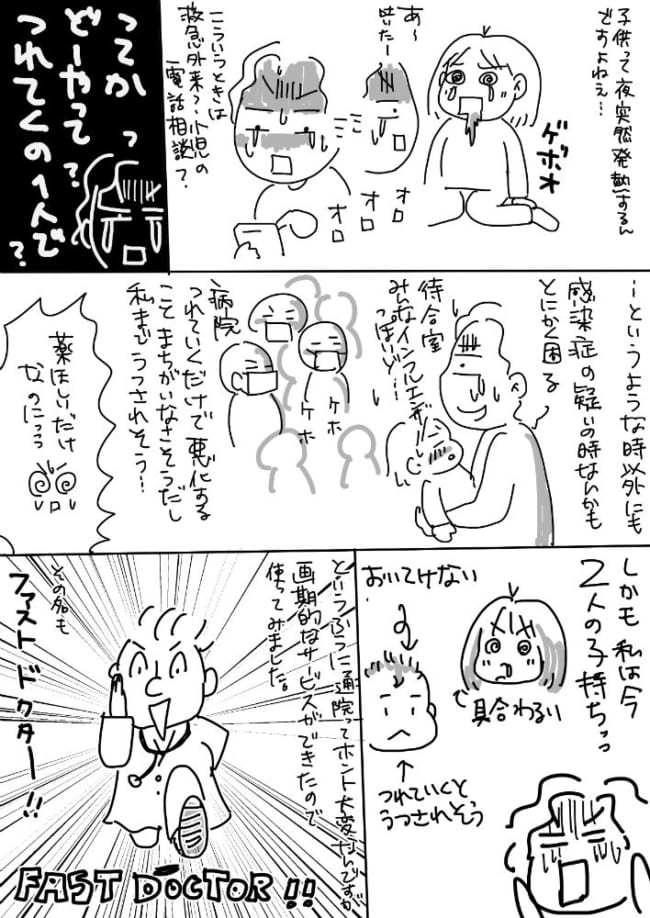 子供って夜突然発熱するん
ですよねぇ…
ゲボォ
あ〜
吐いたー
オロ
オロ
オロ
こういうときは
救急外来?小児の
電話相談?
ってかっ
どーやって
つれてくの1人で
?
?
…というような時以外にも
感染症の疑いの時なんかも
とにかく困る
待合室
みんなインフルエンザ
っぽいど…
ケホ
ケホ
病院
つれていくだけで悪化する
ことまちがいなさそうだし
私までうつされそう…
薬ほしいだけ
なのにっっ
しかも私は今
2人の子持ちっっ
おいてけない
具合わるい
つれていくと
うつされそう
というふうに通院ってホント大変なんですが
画期的なサービスができたので
使ってみました。
その名も
ファストドクター!!
FAST DOCTOR!!